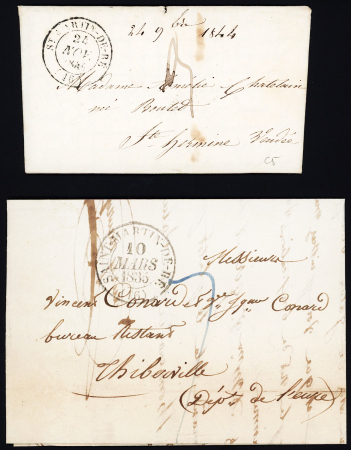 ST MARTIN-DE-RE
24
NOV.
(16)
24 9bre 1844
Madame Amelie Chatelain
né Boutet
Ste hermine Vendée
C5
SAINT-MARTIN-DE-RE
10
MARS
1835
Messieurs
Vincent Conard et Conard
bureau restant
Thiberville
(Dépt de l'eure)